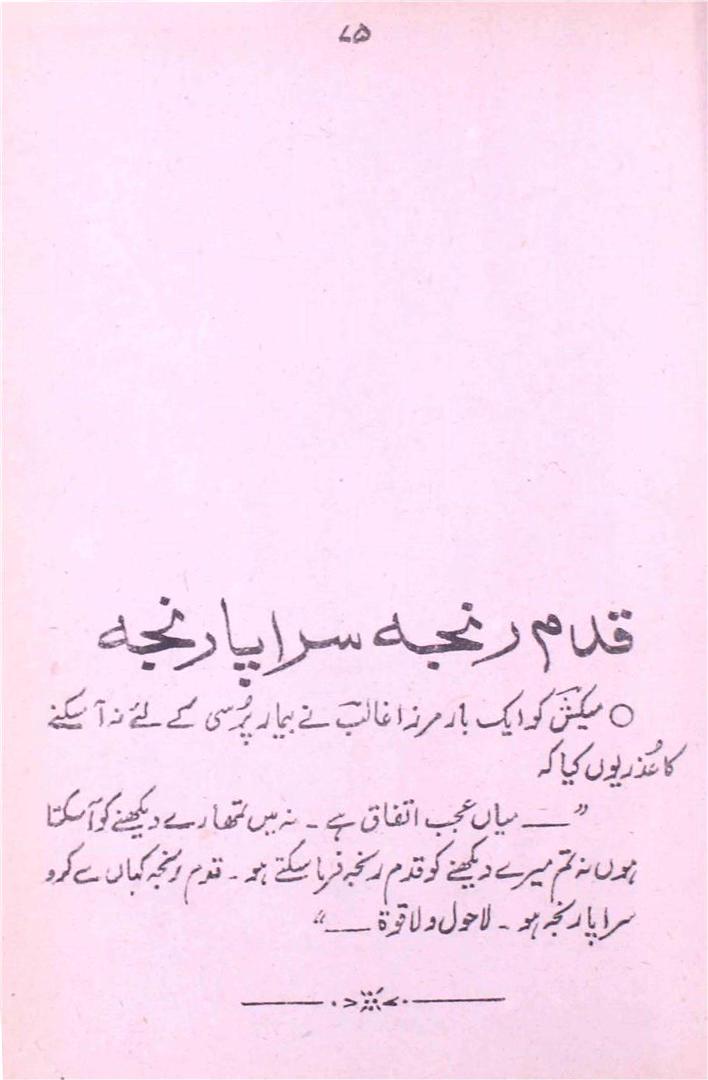 ۷۵
قدم رنجہ سراپا رنجہ
○ میکش کو ایک بار مرزا غالب نے بیمار پُرسی کے لئے نہ آ سکنے
کا عُذر یوں کیا کہ
”ــــ میاں عجب اتفاق ہے ۔ نہ میں تمھارے دیکھنے کو آ سکتا
ہوں نہ تم میرے دیکھنے کو قدم رنجہ فرما سکتے ہو ۔ قدم رنجہ کہاں سے کرو
سراپا رنجہ ہو ۔ لاحول ولا قوۃ ــــ“